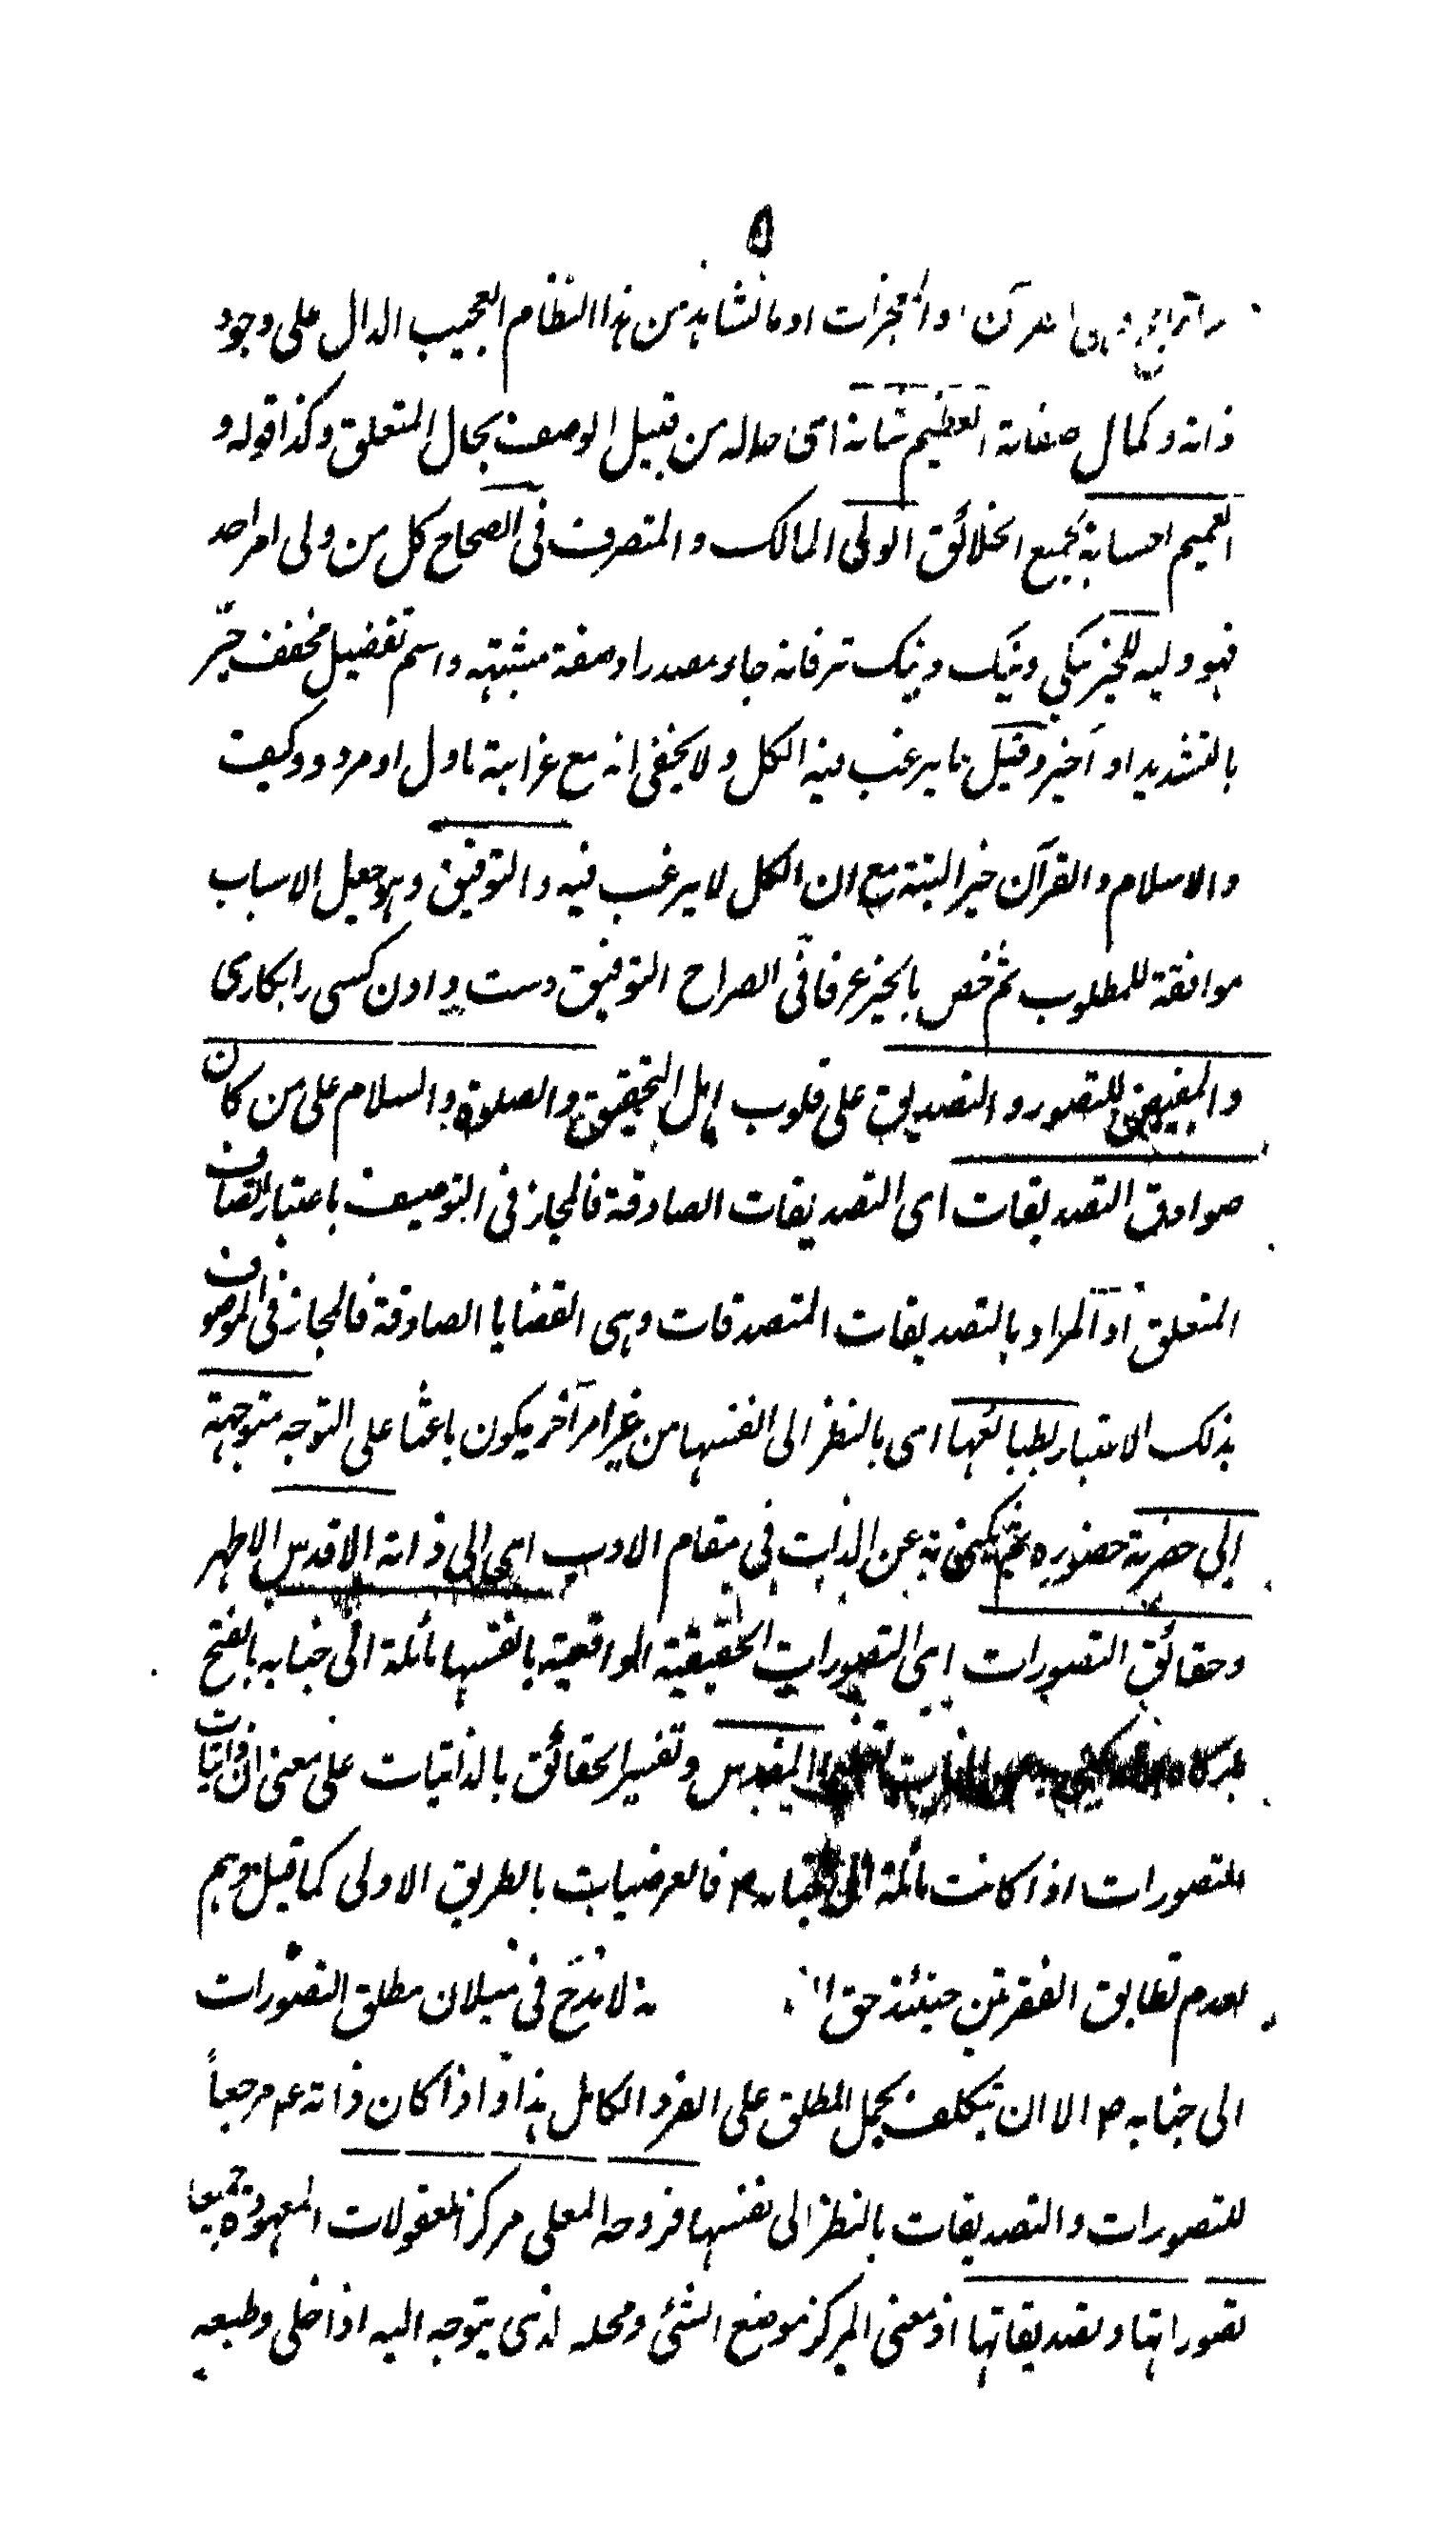 ۵
والمعجزات او ما نشاهد من هذا النظام العجيب الدال على وجود
ذاته و كمال صفاته العظيم شانه اى جلاله من قبيل الوصف بحال المتعلق وكذا قوله و
العميم احسانه لجميع الخلائق الولى المالك و المتصرف فى الصحاح كل من ولى امر احد
فهو وليه للخير نيكى ونيك و نيك تر فانه جاء مصدرا وصفة مشبهة واسم تفضيل مخفف خيّر
بالتشديد او اخير وقيل ما يرغب فيه الكل و لا يخفى انه مع غرابته ماول او مردود وكيف
والاسلام والقرآن خير البتة مع ان الكل لا يرغب فيه والتوفيق وهو جعل الاسباب
موافقة للمطلوب ثم خص بالخير عرفا فى الصراح التوفيق دست دادن كسى را بكارى
والمفيض للتصور و التصديق على قلوب اهل التحقيق والصلوة والسلام على من كان
صوادق التصديقات اى التصديقات الصادقة فالمجاز فى التوصيف باعتبار اتصاف
المتعلق او المراد بالتصديقات المتصدقات وهى القضايا الصادقة فالمجاز فى الموصوف
بذلك الاعتبار بطبائعها اى بالنظر الى انفسها من غير امر آخر يكون باعثا على التوجه متوجهة
الى حضرته حضوره ثم يكنى به عن الذات فى مقام الادب اى الى ذاته الاقدس الاطهر
وحقائق التصورات اى التصورات الحقيقية الواقعية بانفسها مائلة الى جنابه بالفتح
المقدس وتفسير الحقائق بالذاتيات على معنى ان ذاتيات
التصورات اذا كانت مائلة الى جنابه ص فالعرضيات بالطريق الاولى كما قيل توهم
لعدم تطابق الفقرتين حينئذ حق لا تقدح فى ميلان مطلق التصورات
الى جنابه ص الا ان يتكلف بحمل المطلق على الفرد الكامل هذا و اذا كان ذاته عم مرجعاً
للتصورات والتصديقات بالنظر الى نفسها فروحه المعلى مركز المعقولات المعهودة جميعا
تصوراتها وتصديقاتها اذ معنى المركز موضع الشئ ومحله لذى يتوجه اليه اذا خلى وطبعه